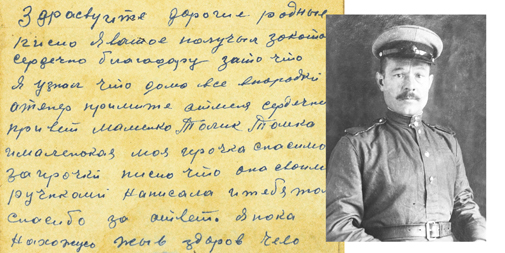 Здрасвуйте дорогие родные
писмо я ватое получыл закото
сердечно благодару зато что
Я узнал что дома все впорядки
атеперь примите отменя сердечны
привет мамочко Толик Томка
ималенкая моя ирочка спасибо
заирочки писмо что она своим
ручками написала итебя то
спасибо за ответ. Я пока
нахожус жыв здоров чего